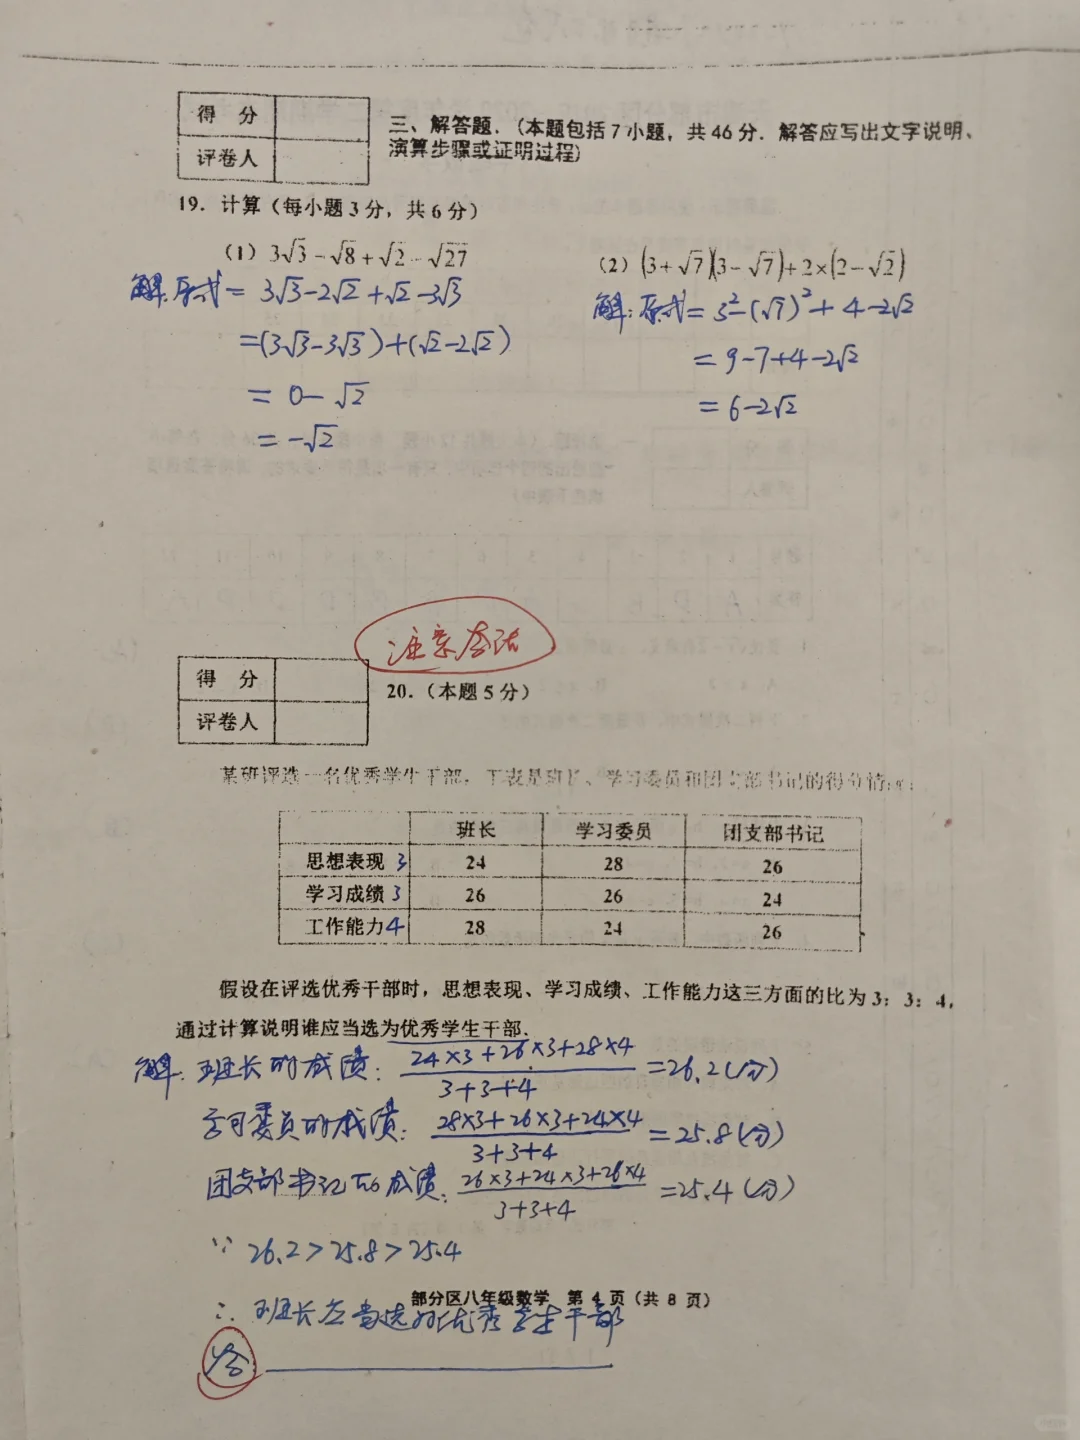 得 分
评卷人
三、解答题.(本题包括7小题，共46分．解答应写出文字说明、
演算步骤或证明过程)
19．计算（每小题3分，共6分）
（1）3√3－√8＋√2－√27
（2）(3＋√7)(3－√7)＋2×(2－√2)
解:原式＝3√3-2√2+√2-3√3
=(3√3-3√3)+(√2-2√2)
= 0-√2
= -√2
解:原式＝3²-(√7)²+4-2√2
= 9-7+4-2√2
= 6-2√2
注意答话
得 分
评卷人
20．（本题5分）
某班评选一名优秀学生干部，下表是班长、学习委员和团支部书记的得分情况：
班长 学习委员 团支部书记
思想表现 3 24 28 26
学习成绩 3 26 26 24
工作能力 4 28 24 26
假设在评选优秀干部时，思想表现、学习成绩、工作能力这三方面的比为3：3：4，
通过计算说明谁应当选为优秀学生干部．
解:班长的成绩: (24×3+26×3+28×4)/(3+3+4)=26.2(分)
学习委员的成绩: (28×3+26×3+24×4)/(3+3+4)=25.8(分)
团支部书记的成绩: (26×3+24×3+26×4)/(3+3+4)=25.4(分)
∵ 26.2>25.8>25.4
部分区八年级数学 第 4 页（共 8 页）
∴ 班长应当选为优秀学生干部
答